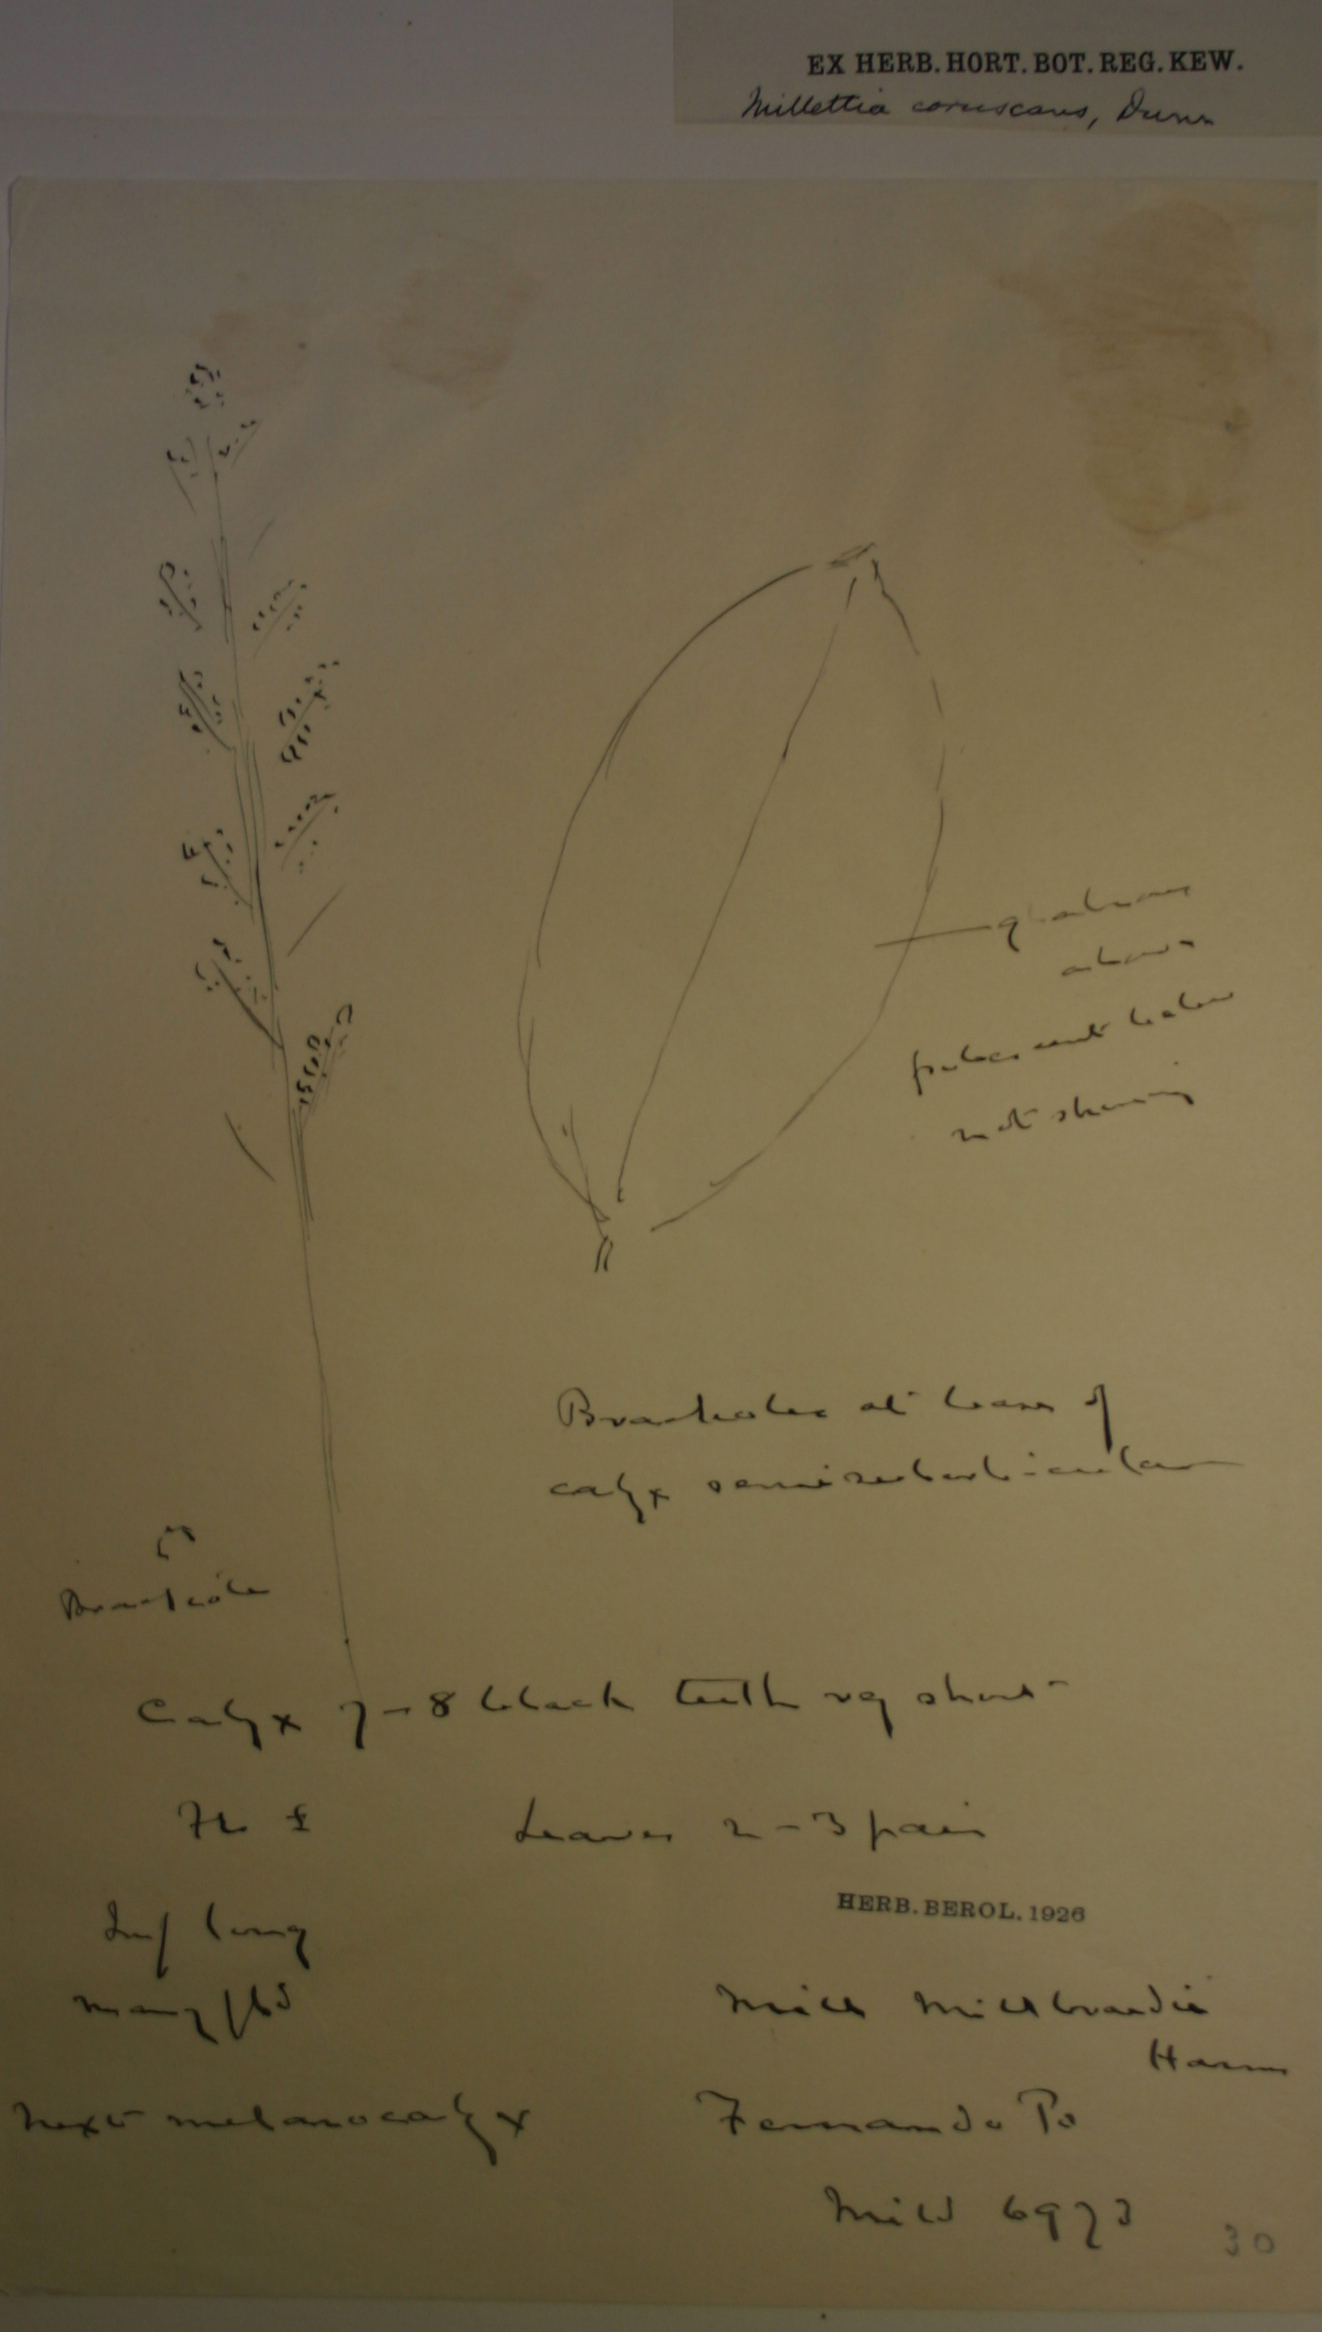 EX HERB. HORT. BOT. REG. KEW.
Millettia coruscans, Dunn
glabrous
above
pubescent below
not shining
Bracteoles at base of
calyx semisuborbicular
Bracteole
Calyx 7-8 black teeth vy short
Leaves 2-3 pair
Inf long
many fld
HERB. BEROL. 1926
Mill Mildbraedii
Harms
next melanocalyx
Fernando Po
Mild 6973
30